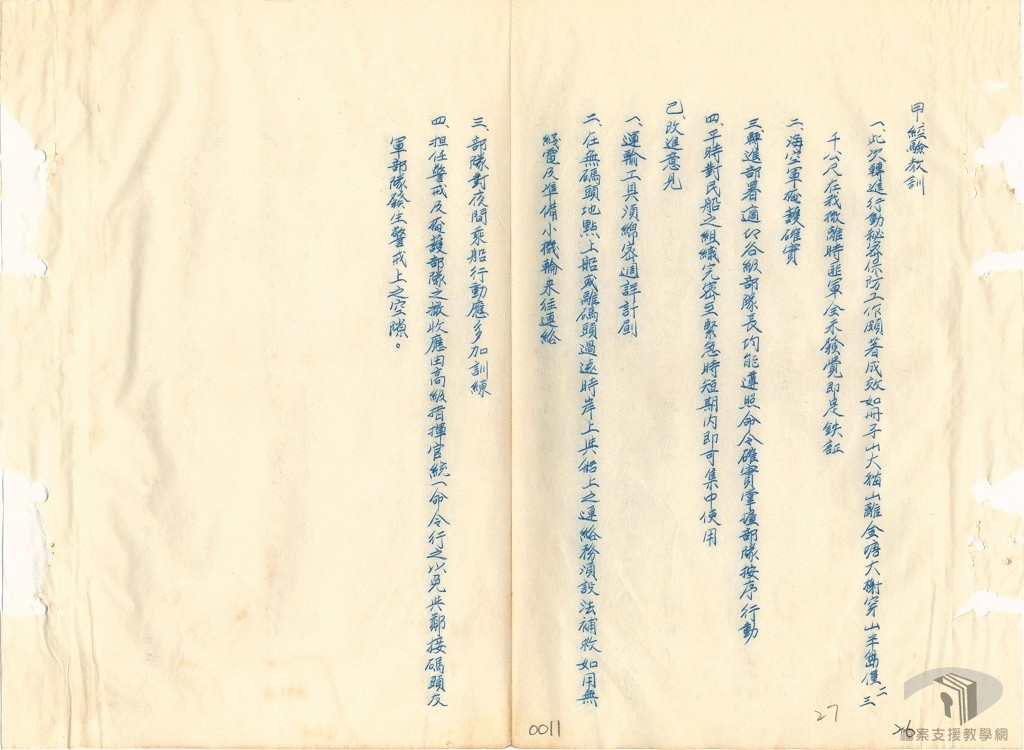 甲、經驗教訓
一、此次轉進行動秘密保防工作頗著成效如冊子山大猫山離金塘大榭穿山半島僅二三
千公尺在我撤離時匪軍全未發覺即是鉄証
二、海空軍掩護確實
三、轉進部署適切各級部隊長均能遵照命令確實掌握部隊按序行動
四、平時對民船之組織完密至緊急時短期內即可集中使用
己、改進意見
一、運輸工具須綿密週詳計劃
二、在無碼頭地點上船或離碼頭過遠時岸上與船上之連絡務須設法補救如用無
綫電及準備小機輪來往連絡
三、部隊對夜間乘船行動應多加訓練
四、担任警戒及掩護部隊之撤收應由高級指揮官統一命令行之以免與鄰接碼頭友
軍部隊發生警戒上之空隙。
0011
27
26
檔案支援教學網